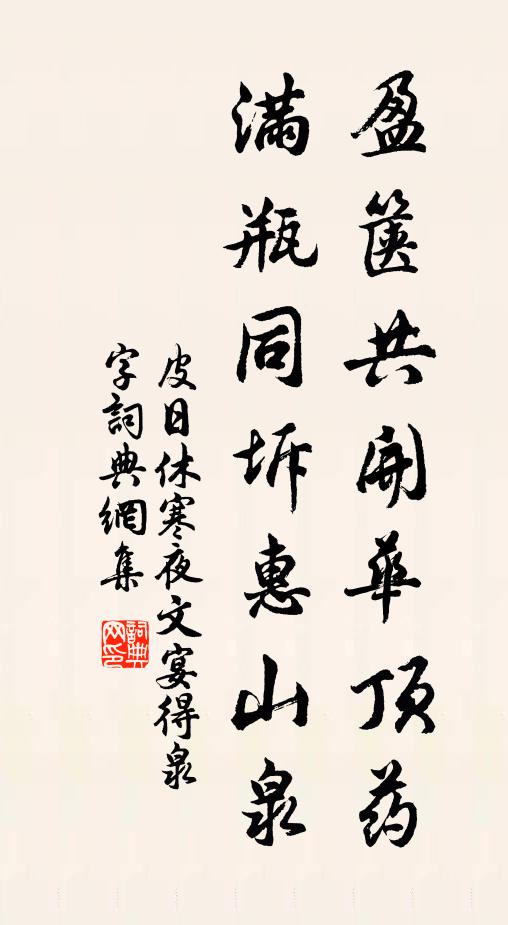 盈篋共開華頂药
滿瓶同坼惠山泉
皮日休寒夜文宴得泉
字詞典網集
詞典
网印